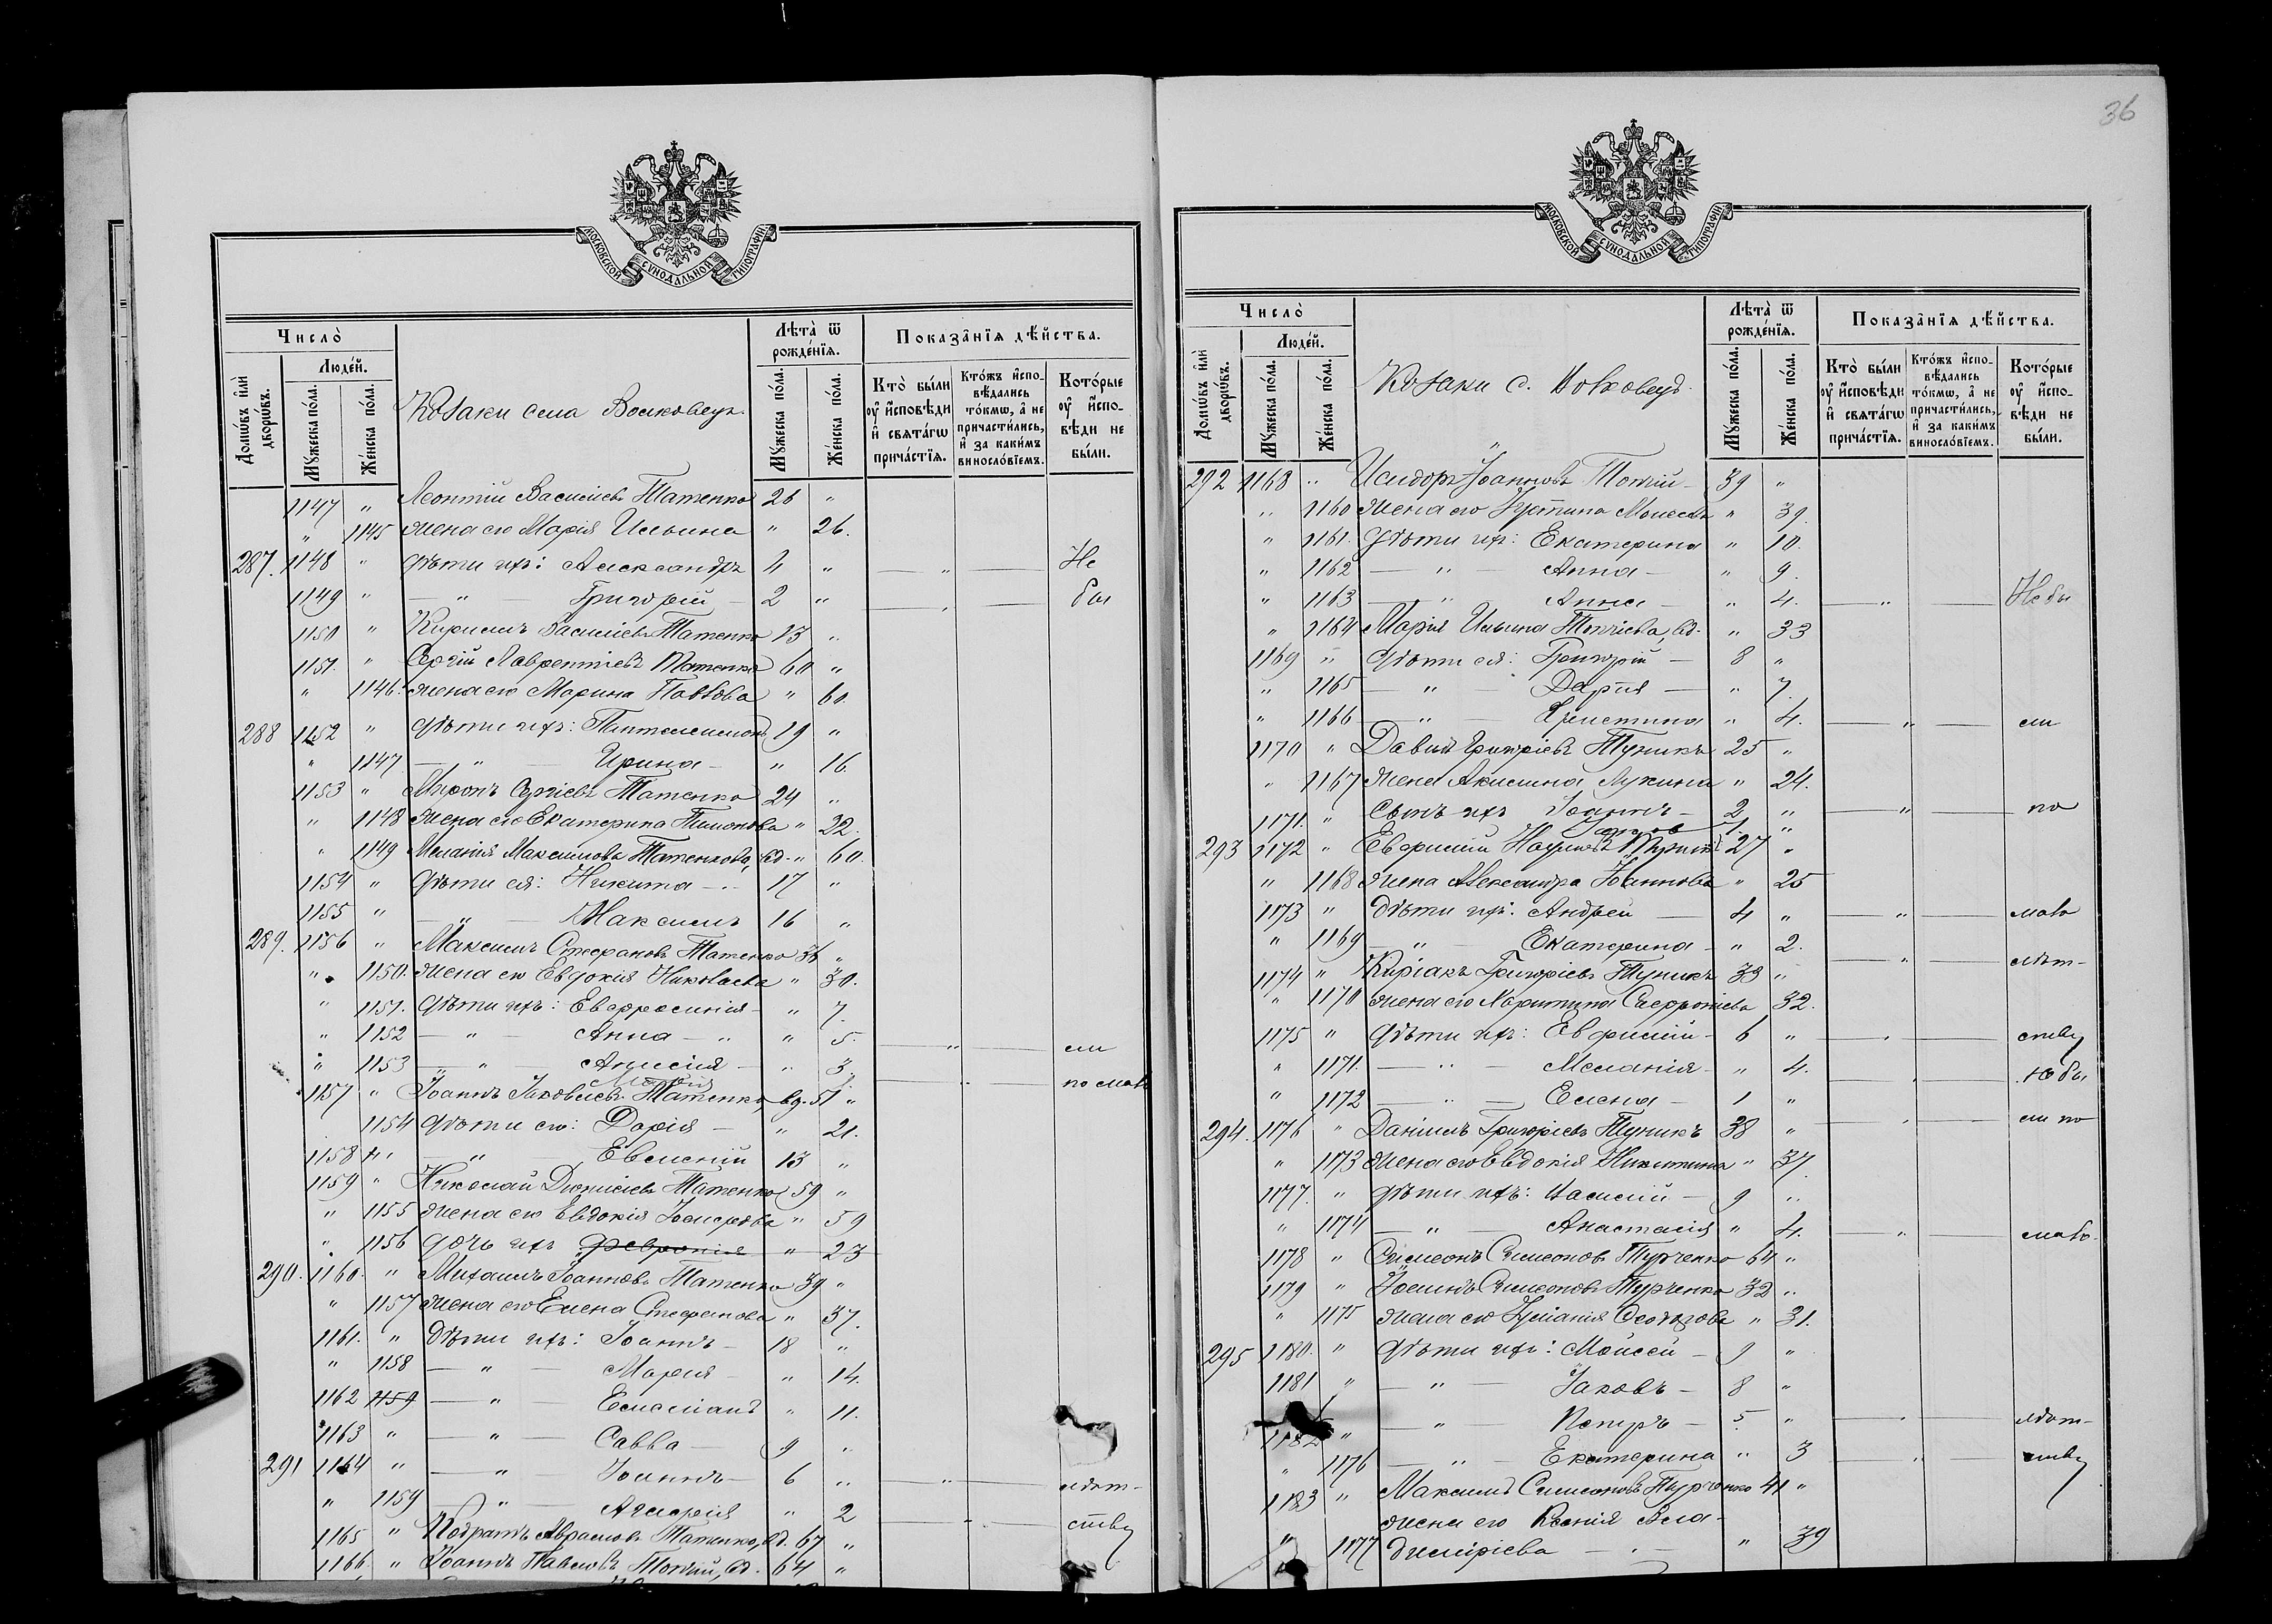 36
МОСКОВСКОЙ СѴНОДАЛЬНОЙ ТИПОГРАФІИ
Число̀
Домѡ́въ и҆лѝ дворѡ́въ.
Люде́й.
Мꙋ́жеска по́ла.
Же́нска по́ла.
Козаки села Волковецъ
Лѣта̀ ѿ рожде́нїѧ.
Мꙋ́жеска по́ла.
Же́нска по́ла.
Показа̑нїѧ дѣ́йства.
Кто̀ бы́ли оу҆ и҆сповѣ́ди и҆ свѧта́гѡ прича́стїѧ.
Кто́жъ и҆спо-вѣ́дались то́кмѡ, а҆ не причасти́лись, и҆ за каки́мъ винословїемъ.
Кото́рые оу҆ и҆спо-вѣ́ди не бы́ли.
1147 " Леонтій Василіевъ Татенко 26 "
" 1145 жена его Марія Ильина " 26.
287. 1148 " дѣти ихъ: Александръ 4 " — " — Не
1149 " — " — Григорій — 2 " — " — бы
1150 " Кириллъ Василіевъ Татенко 13 "
1151. " Сергій Лаврентіевъ Татенко 60 "
" 1146. жена его Марина Павлова " 60.
288 1152 " дѣти ихъ: Пантелеимонъ 19 "
" 1147 — " — Ирина — " 16.
1153 " Миронъ Сергіевъ Татенко 24 "
" 1148 жена его Екатерина Тимонова " 22.
" 1149 Меланія Максимова Татенкова, вд. " 60.
1154 " дѣти ея: Никита — 17 "
1155 " — " — Максимъ 16 "
289. 1156 " Максимъ Стефановъ Татенко 36 "
" 1150. жена его Евдокія Николаева " 30.
" 1151. дѣти ихъ: Евфросинія — " 7.
" 1152 — " — Анна — " 5. — " — ли
" 1153 — " — Анисія — " 3. — " — по мало
Марія 1.
1157 " Іоаннъ Іаковлевъ Татенко, вд. 51 "
1154 дѣти его: Дарія — " 21.
1158 " — " — Евмений 13 "
1159 " Николай Діонисіевъ Татенко 59 "
" 1155 жена его Евдокія " 59
" 1156 дочь ихъ Февронія " 23
290. 1160. " Михаилъ Іоанновъ Татенко 39 "
" 1157 жена его Елена Стефанова " 37.
1161. " дѣти ихъ: Іоаннъ — 18 "
" 1158 — " — Марія — " 14.
1162 1159 — " — Емеліанъ " 11.
1163 " — " — Савва — 9 "
291 1164 " — " — Іоаннъ — 6 " — " — лѣт-
" 1159 — " — " 2 — " — ству
1165 " Кодратъ Аврамовъ Татенко, вд. 67 "
1166. " Іоаннъ Павловъ Топчій, вд. 64 "
МОСКОВСКОЙ СѴНОДАЛЬНОЙ ТИПОГРАФІИ
Число̀
Домѡ́въ и҆лѝ дворѡ́въ.
Люде́й.
Мꙋ́жеска по́ла.
Же́нска по́ла.
Козаки с. Волковецъ
Лѣта̀ ѿ рожде́нїѧ.
Мꙋ́жеска по́ла.
Же́нска по́ла.
Показа̑нїѧ дѣ́йства.
Кто̀ бы́ли оу҆ и҆сповѣ́ди и҆ свѧта́гѡ прича́стїѧ.
Кто́жъ и҆спо-вѣ́дались то́кмѡ, а҆ не причасти́лись, и҆ за каки́мъ винословїемъ.
Кото́рые оу҆ и҆спо-вѣ́ди не бы́ли.
292 1168 " Исидоръ Іоанновъ Топчій — 39 "
" 1160 жена его Іустина " 39.
" 1161. дѣти ихъ: Екатерина " 10.
" 1162 — " — Анна — " 9.
" 1163 — " — Анна — " 4. — " — Не бы
" 1164 Марія Ильина Топчіева, вд. " 33
1169 " дѣти ея: Григорій — 8 "
" 1165 — " — Дарія — " 7.
" 1166 — " — Христина " 4. — " — ли
1170 " Давидъ Григоріевъ Тупикъ 25 "
" 1167 жена Акилина Лукина " 24.
1171. " сынъ ихъ Іоаннъ — 2 " — " — по
Іаковъ 1. "
293 1172 " Евфимій Наумовъ 27 "
" 1168 жена Александра Іоаннова " 25
1173 " дѣти ихъ: Андрей — 4 " — " — мало
" 1169 — " — Екатерина — " 2.
1174 " Киріакъ Григоріевъ Тупикъ 33 " — " — лѣт-
" 1170 жена его Харитина Сафроніева 32.
1175 " дѣти ихъ: Евфимій — 6 " — " — ству
" 1171. — " — Меланія — " 4. — " — не бы
" 1172 — " — Елена — 1 "
294. 1176 " Даніилъ Григоріевъ Тупикъ 38 " — " — ли по
" 1173 жена его Евдокія Никитина " 37.
1177. " дѣти ихъ: Василій — 9 "
" 1174 — " — Анастасія " 4. — " — мало.
1178 " Симеонъ Симеоновъ Турченко 64 "
1179 " Симеоновъ Турченко 32 "
" 1175 жена его Іуліанія " 31.
295 1180. " дѣти ихъ: Моисей — 9 "
1181 " — " — Іаковъ — 8 "
1182 " — " — Петръ — 5. " — " — лѣт-
" 1176 — " — Екатерина " 3 — " — ству
1183 " Максимъ Симеоновъ Турченко 41 "
жена его Ксенія Вла-
" 1177 диміріева — " 39